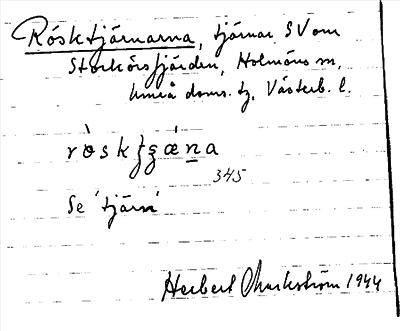 Rösktjärnarna, tjärnar SV om
Storkörsfjärden, Holmöns sn,
Umeå doms. tg, Västerb. l.
345
Se 'tjärn'
Herbert Markström 1944